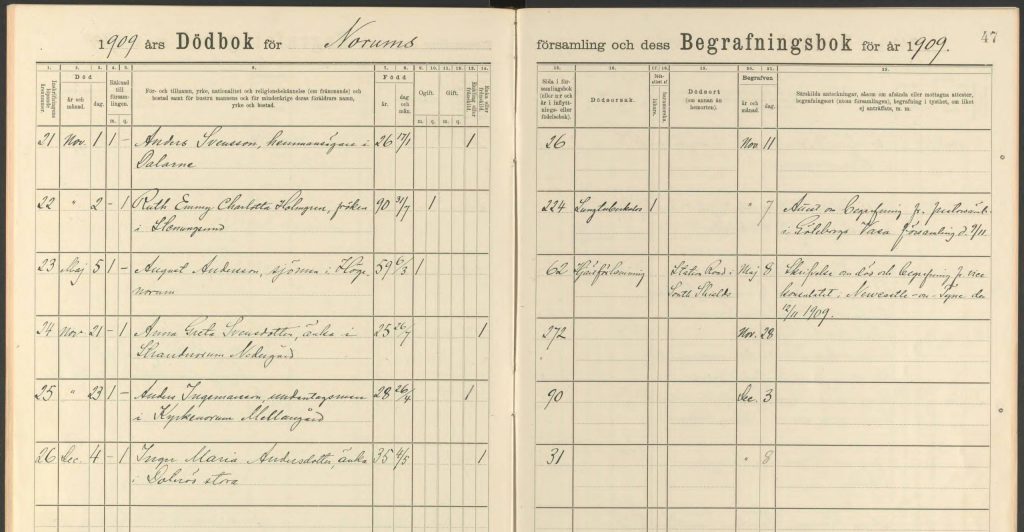 1909 års Dödbok för Norums
församling och dess Begrafningsbok för år 1909.
47
1. 2. 3. 4. 5. 6. 7. 8. 9. 10. 11. 12. 13. 14.
Död
Räknad till församlingen.
För- och tillnamn, yrke, nationalitet och religionsbekännelse (om främmande) och
bostad samt för hustru mannens och för minderårige deras föräldrars namn,
yrke och bostad.
Född
Ogift. Gift.
år och månad. dag. m. q. år. dag och mån. m. q. m. q.
Dödsorsak.
Dödsort
(om annan än
hemorten).
Begrafven
år och månad. dag.
Särskilda anteckningar, såsom om afsända eller mottagna attester,
begrafningsort (utom församlingen), begrafning i tysthet, om liket
ej anträffats, m. m.
21 Nov. 1 1 - Anders Svensson, hemmansägare i 26 17/1 1 26 Nov. 11
Dalarne
22 " 2 - 1 Ruth Emmy Charlotta Holmgren, fröken 90 31/7 1 224 Lungtuberkulos 1 " 7 Attest om begrafning fr.
i Stenungsund i Göteborgs Vasa församling d. 7/11.
23 Maj 5 1 - August Andersson, sjöman i Höge 59 6/3 1 62 Hjärtförlamning Station Road i Maj 8 Skrifvelse om död och begrafning fr. vice
norum South Shields konsulatet i Newcastle-on-Tyne den
12/11 1909.
24 Nov. 21 - 1 Anna Greta Svensdotter, änka i 25 26/7 1 272 Nov. 28
Strandnorum Nedergård
25 " 23 1 - Anders Ingemarsson, undantagsman 28 26/4 1 90 Dec. 3
i Kyrkenorum Mellangård
26 Dec. 4 - 1 Inger Maria Andersdotter, änka 35 4/5 1 31 " 8
i Dolerös stora